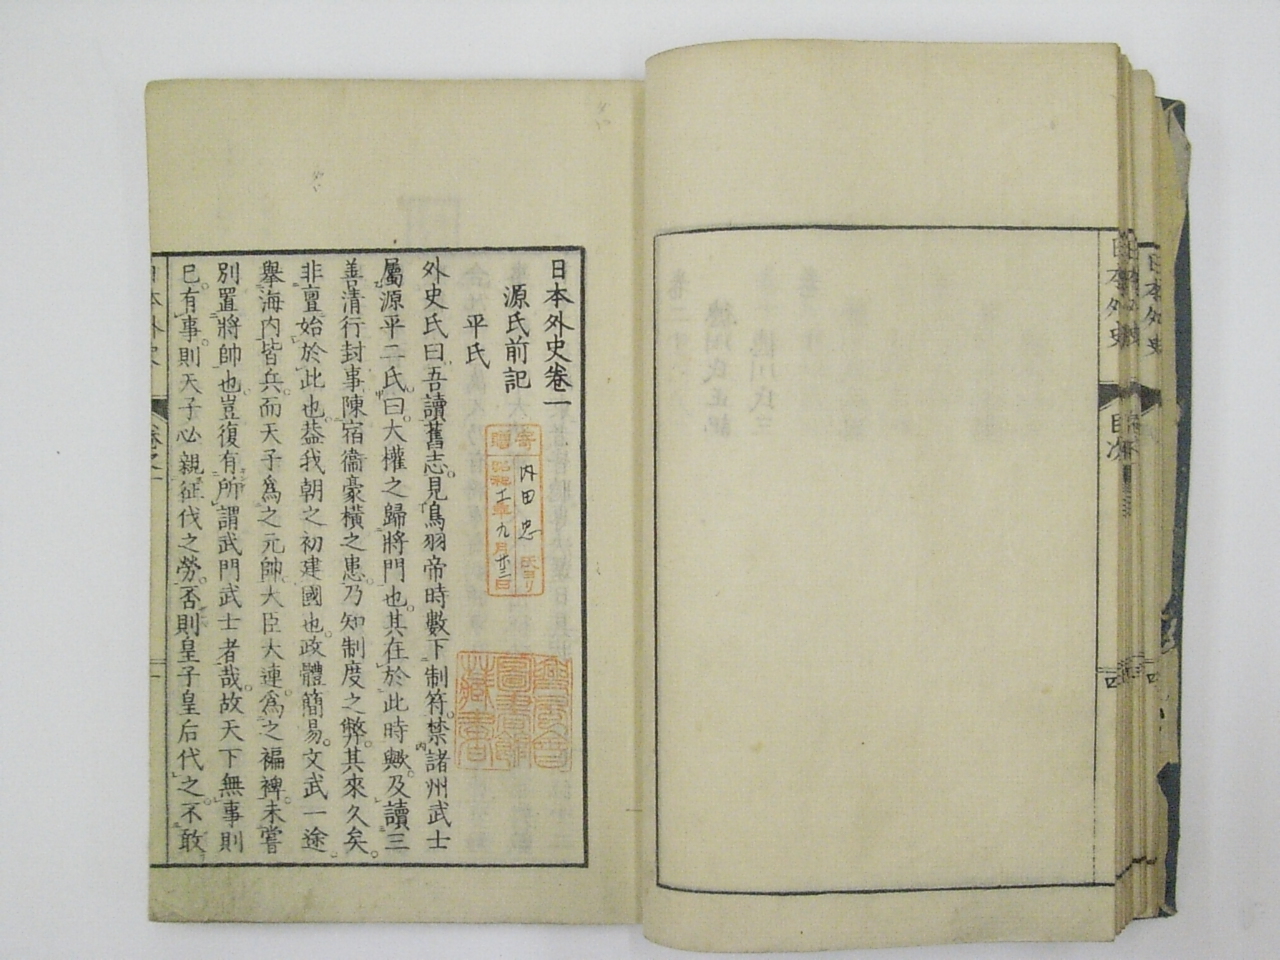 日本外史
目次
四
日本外史卷一
源氏前記
平氏
外史氏曰吾讀舊志見鳥羽帝時數下制符禁諸州武士
屬源平二氏曰大權之歸將門也其在於此時歟及讀三
善清行封事陳宿衞豪橫之患乃知制度之弊其來久矣
非亶始於此也葢我朝之初建國也政體簡易文武一途
舉海内皆兵而天子爲之元帥大臣大連爲之褊裨未嘗
別置將帥也豈復有所謂武門武士者哉故天下無事則
已有事則天子必親征伐之勞否則皇子皇后代之不敢
日本外史
卷之一
一
寄贈
内田忠氏ヨリ
昭和工年九月廿三日
圖書館
藏書